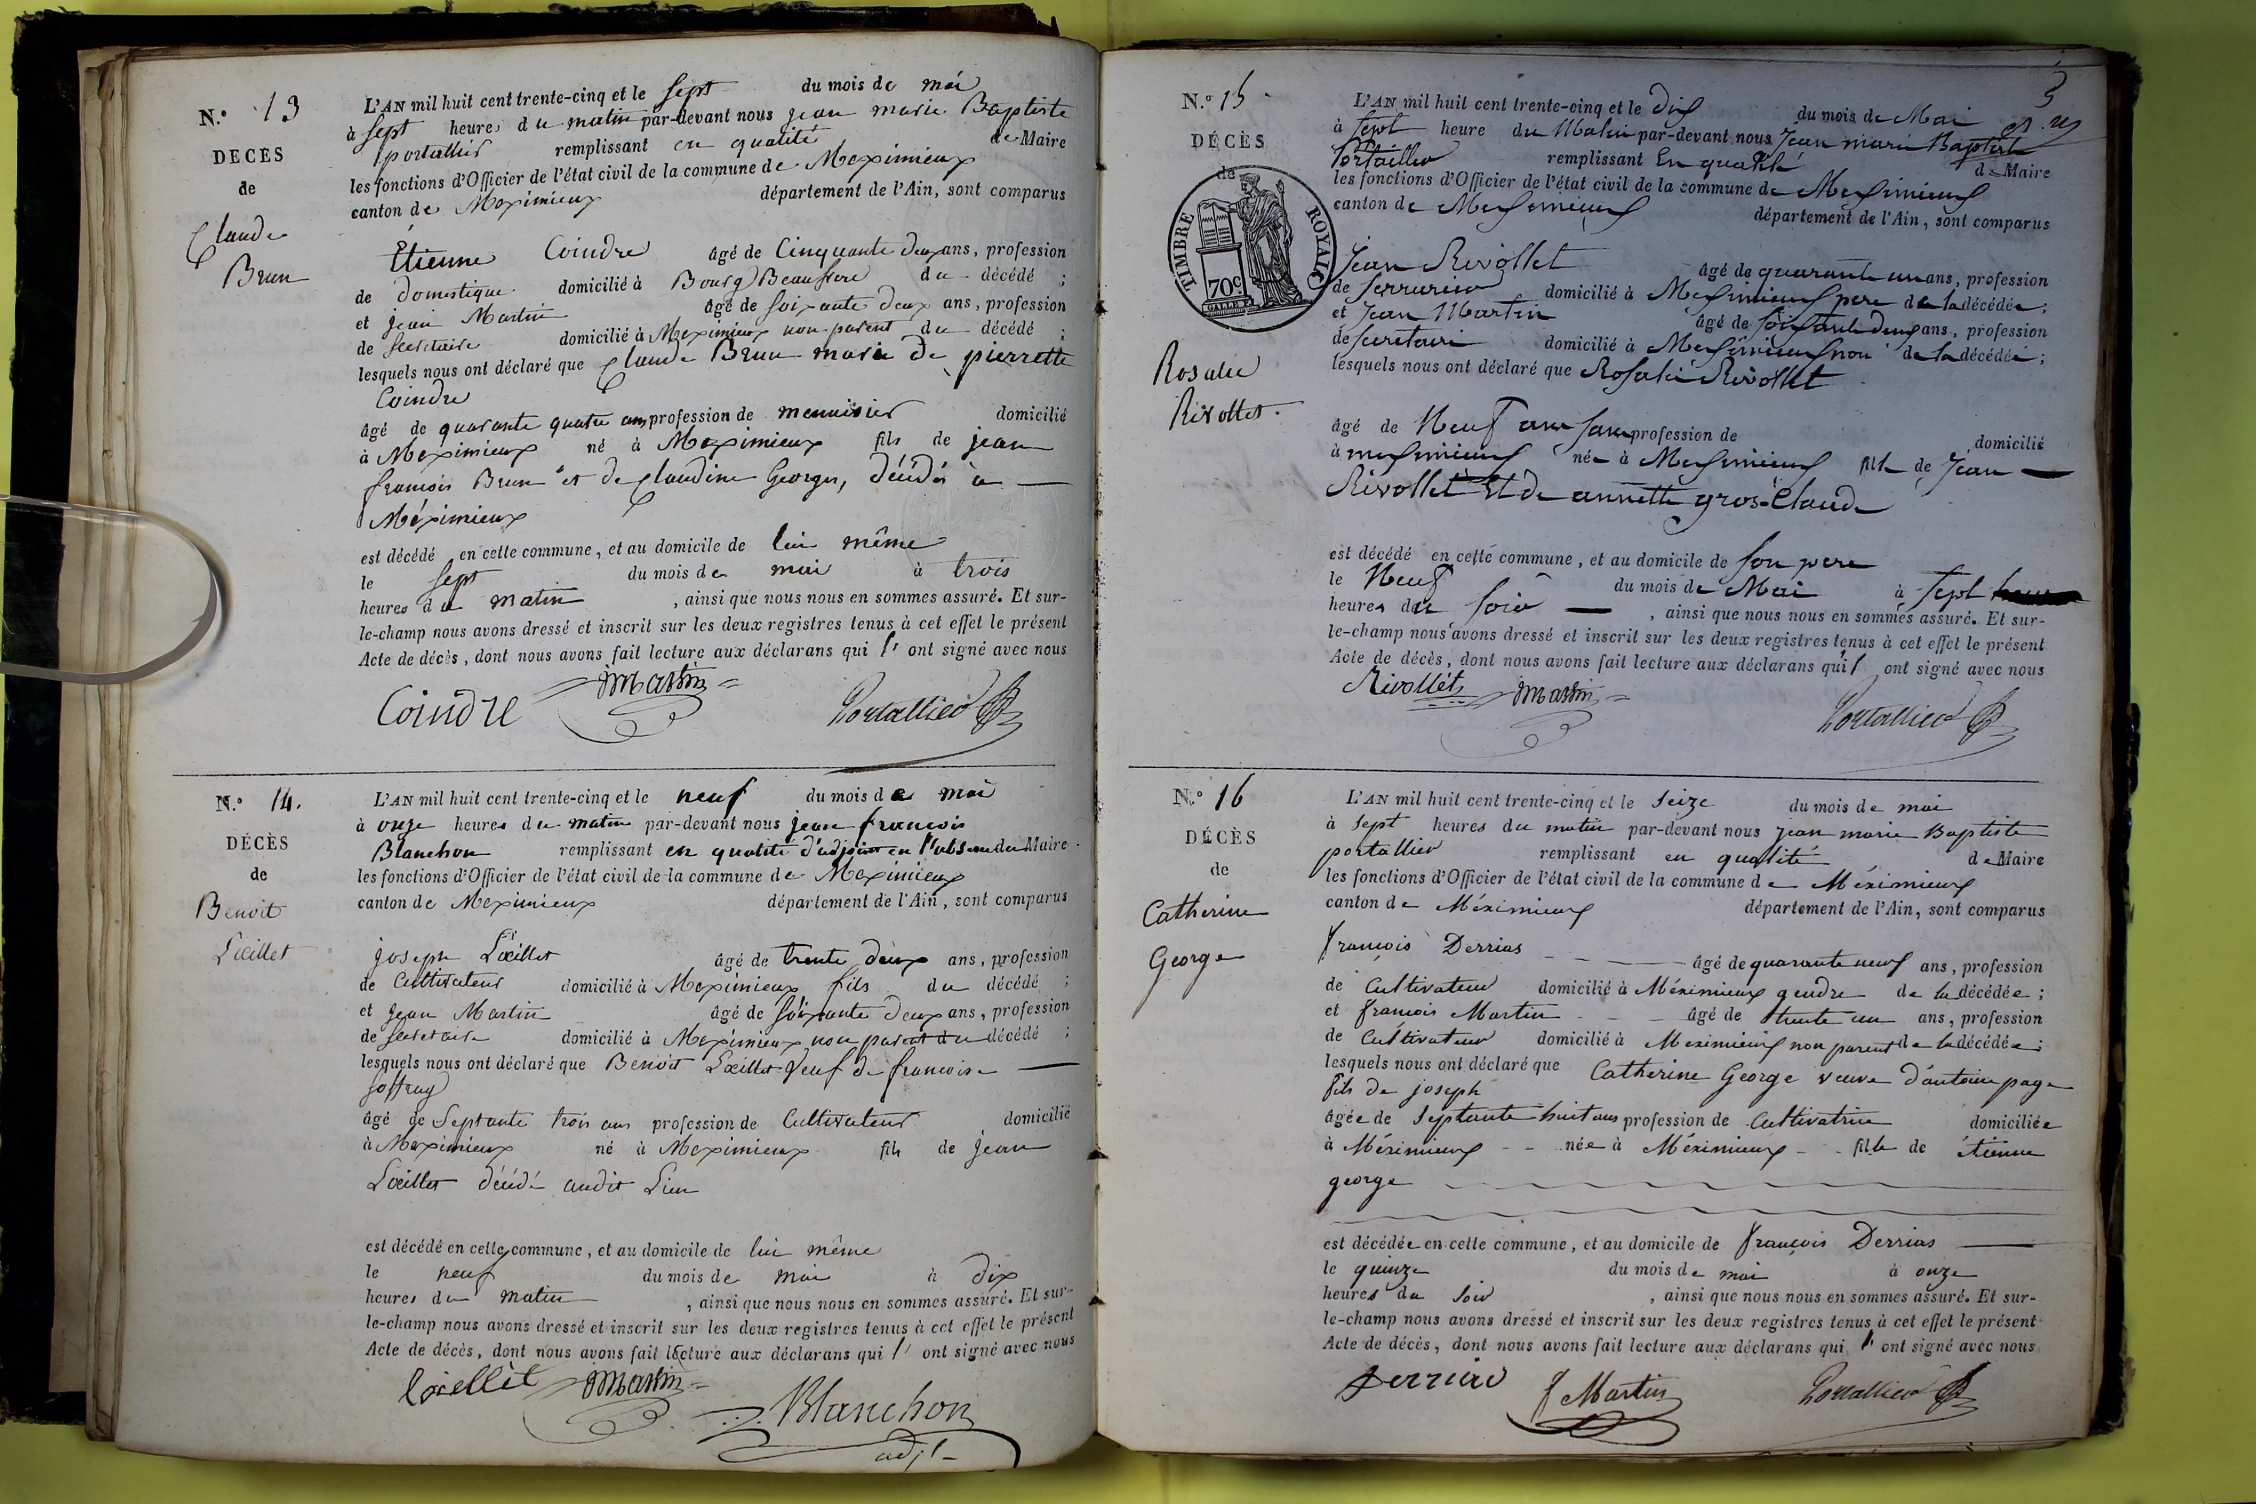 N.° 13
DÉCÈS
de
Claude
Brun
L'AN mil huit cent trente-cinq et le sept du mois de mai
à sept heures du matin par-devant nous jean marie Baptiste
portallier remplissant en qualité de Maire
les fonctions d'Officier de l'état civil de la commune de Meximieux
canton de Meximieux département de l'Ain, sont comparus
Étienne Coindre âgé de Cinquante deux ans, profession
de domestique domicilié à Bourg Beaufrere du décédé ;
et jean Martin âgé de soixante deux ans, profession
de secretaire domicilié à Meximieux non parent du décédé ;
lesquels nous ont déclaré que Claude Brun marie de pierrette
Coindre
âgé de quarante quatre ans profession de menuisier domicilié
à Meximieux né à Meximieux fils de jean
françois Brun et de Claudine Georges, décédés à
Méximieux
est décédé en cette commune, et au domicile de lui même
le sept du mois de mai à trois
heures du matin , ainsi que nous nous en sommes assuré. Et sur-
le-champ nous avons dressé et inscrit sur les deux registres tenus à cet effet le présent
Acte de décès, dont nous avons fait lecture aux déclarans qui l' ont signé avec nous
Coindre Martin Portallier
N.° 14.
DÉCÈS
de
Benoit
Lœillet
L'AN mil huit cent trente-cinq et le neuf du mois de mai
à onze heures du matin par-devant nous jean francois
Blanchon remplissant en qualité d'adjoint en l'absence du Maire
les fonctions d'Officier de l'état civil de la commune de Meximieux
canton de Meximieux département de l'Ain, sont comparus
joseph Lœillet âgé de trente deux ans, profession
de Cultivateur domicilié à Meximieux fils du décédé ;
et jean Martin âgé de soixante deux ans, profession
de secretaire domicilié à Meximieux non parent du décédé ;
lesquels nous ont déclaré que Benoit Lœillet veuf de francoise
joffray
âgé de Septante trois ans profession de Cultivateur domicilié
à Meximieux né à Meximieux fils de jean
Lœillet décédé audit Lieu
est décédé en cette commune, et au domicile de lui même
le neuf du mois de mai à dix
heures du matin , ainsi que nous nous en sommes assuré. Et sur-
le-champ nous avons dressé et inscrit sur les deux registres tenus à cet effet le présent
Acte de décès, dont nous avons fait lecture aux déclarans qui l' ont signé avec nous
Lœillet Martin Blanchon
adjt
3
N.° 15
DÉCÈS
de
TIMBRE ROYAL
70c
Rosalie
Rivollet.
L'AN mil huit cent trente-cinq et le dix du mois de Mai
à sept heure du Matin par-devant nous Jean marie Baptiste
Portallier remplissant En qualité de Maire
les fonctions d'Officier de l'état civil de la commune de Meximieux
canton de Meximieux département de l'Ain, sont comparus
Jean Rivollet âgé de quarante un ans, profession
de serrurier domicilié à Meximieux pere de la décédée ;
et Jean Martin âgé de soixante deux ans, profession
de secretaire domicilié à Meximieux non de la décédée ;
lesquels nous ont déclaré que Rosalie Rivollet
âgé de Neuf ans sans profession de domicilié
à meximieux née à Meximieux fille de Jean
Rivollet Et de annette gros-Claude
est décédé en cette commune, et au domicile de son pere
le Neuf du mois de Mai à sept
heures du soir , ainsi que nous nous en sommes assuré. Et sur-
le-champ nous avons dressé et inscrit sur les deux registres tenus à cet effet le présent
Acte de décès, dont nous avons fait lecture aux déclarans qui l' ont signé avec nous
Rivollet Martin Portallier
N.° 16
DÉCÈS
de
Catherine
George
L'AN mil huit cent trente-cinq et le seize du mois de mai
à sept heures du matin par-devant nous jean marie Baptiste
portallier remplissant en qualité de Maire
les fonctions d'Officier de l'état civil de la commune de Méximieux
canton de Méximieux département de l'Ain, sont comparus
françois Derrias âgé de quarante neuf ans, profession
de Cultivateur domicilié à Méximieux gendre de la décédée ;
et françois Martin âgé de trente un ans, profession
de Cultivateur domicilié à Meximieux non parent de la décédée ;
lesquels nous ont déclaré que Catherine George veuve d'antoine page
fils de joseph
âgée de septante huit ans profession de Cultivatrice domiciliée
à Méximieux née à Méximieux fille de étienne
george
est décédée en cette commune, et au domicile de françois Derrias
le quinze du mois de mai à onze
heures du soir , ainsi que nous nous en sommes assuré. Et sur-
le-champ nous avons dressé et inscrit sur les deux registres tenus à cet effet le présent
Acte de décès, dont nous avons fait lecture aux déclarans qui l' ont signé avec nous
Derrias f Martin Portallier